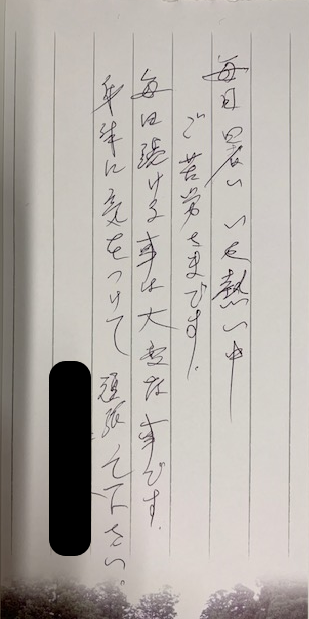 毎日暑い いや熱い中
ご苦労さまです.
毎日続ける事は大変な事です.
に気をつけて 頑張って下さい。